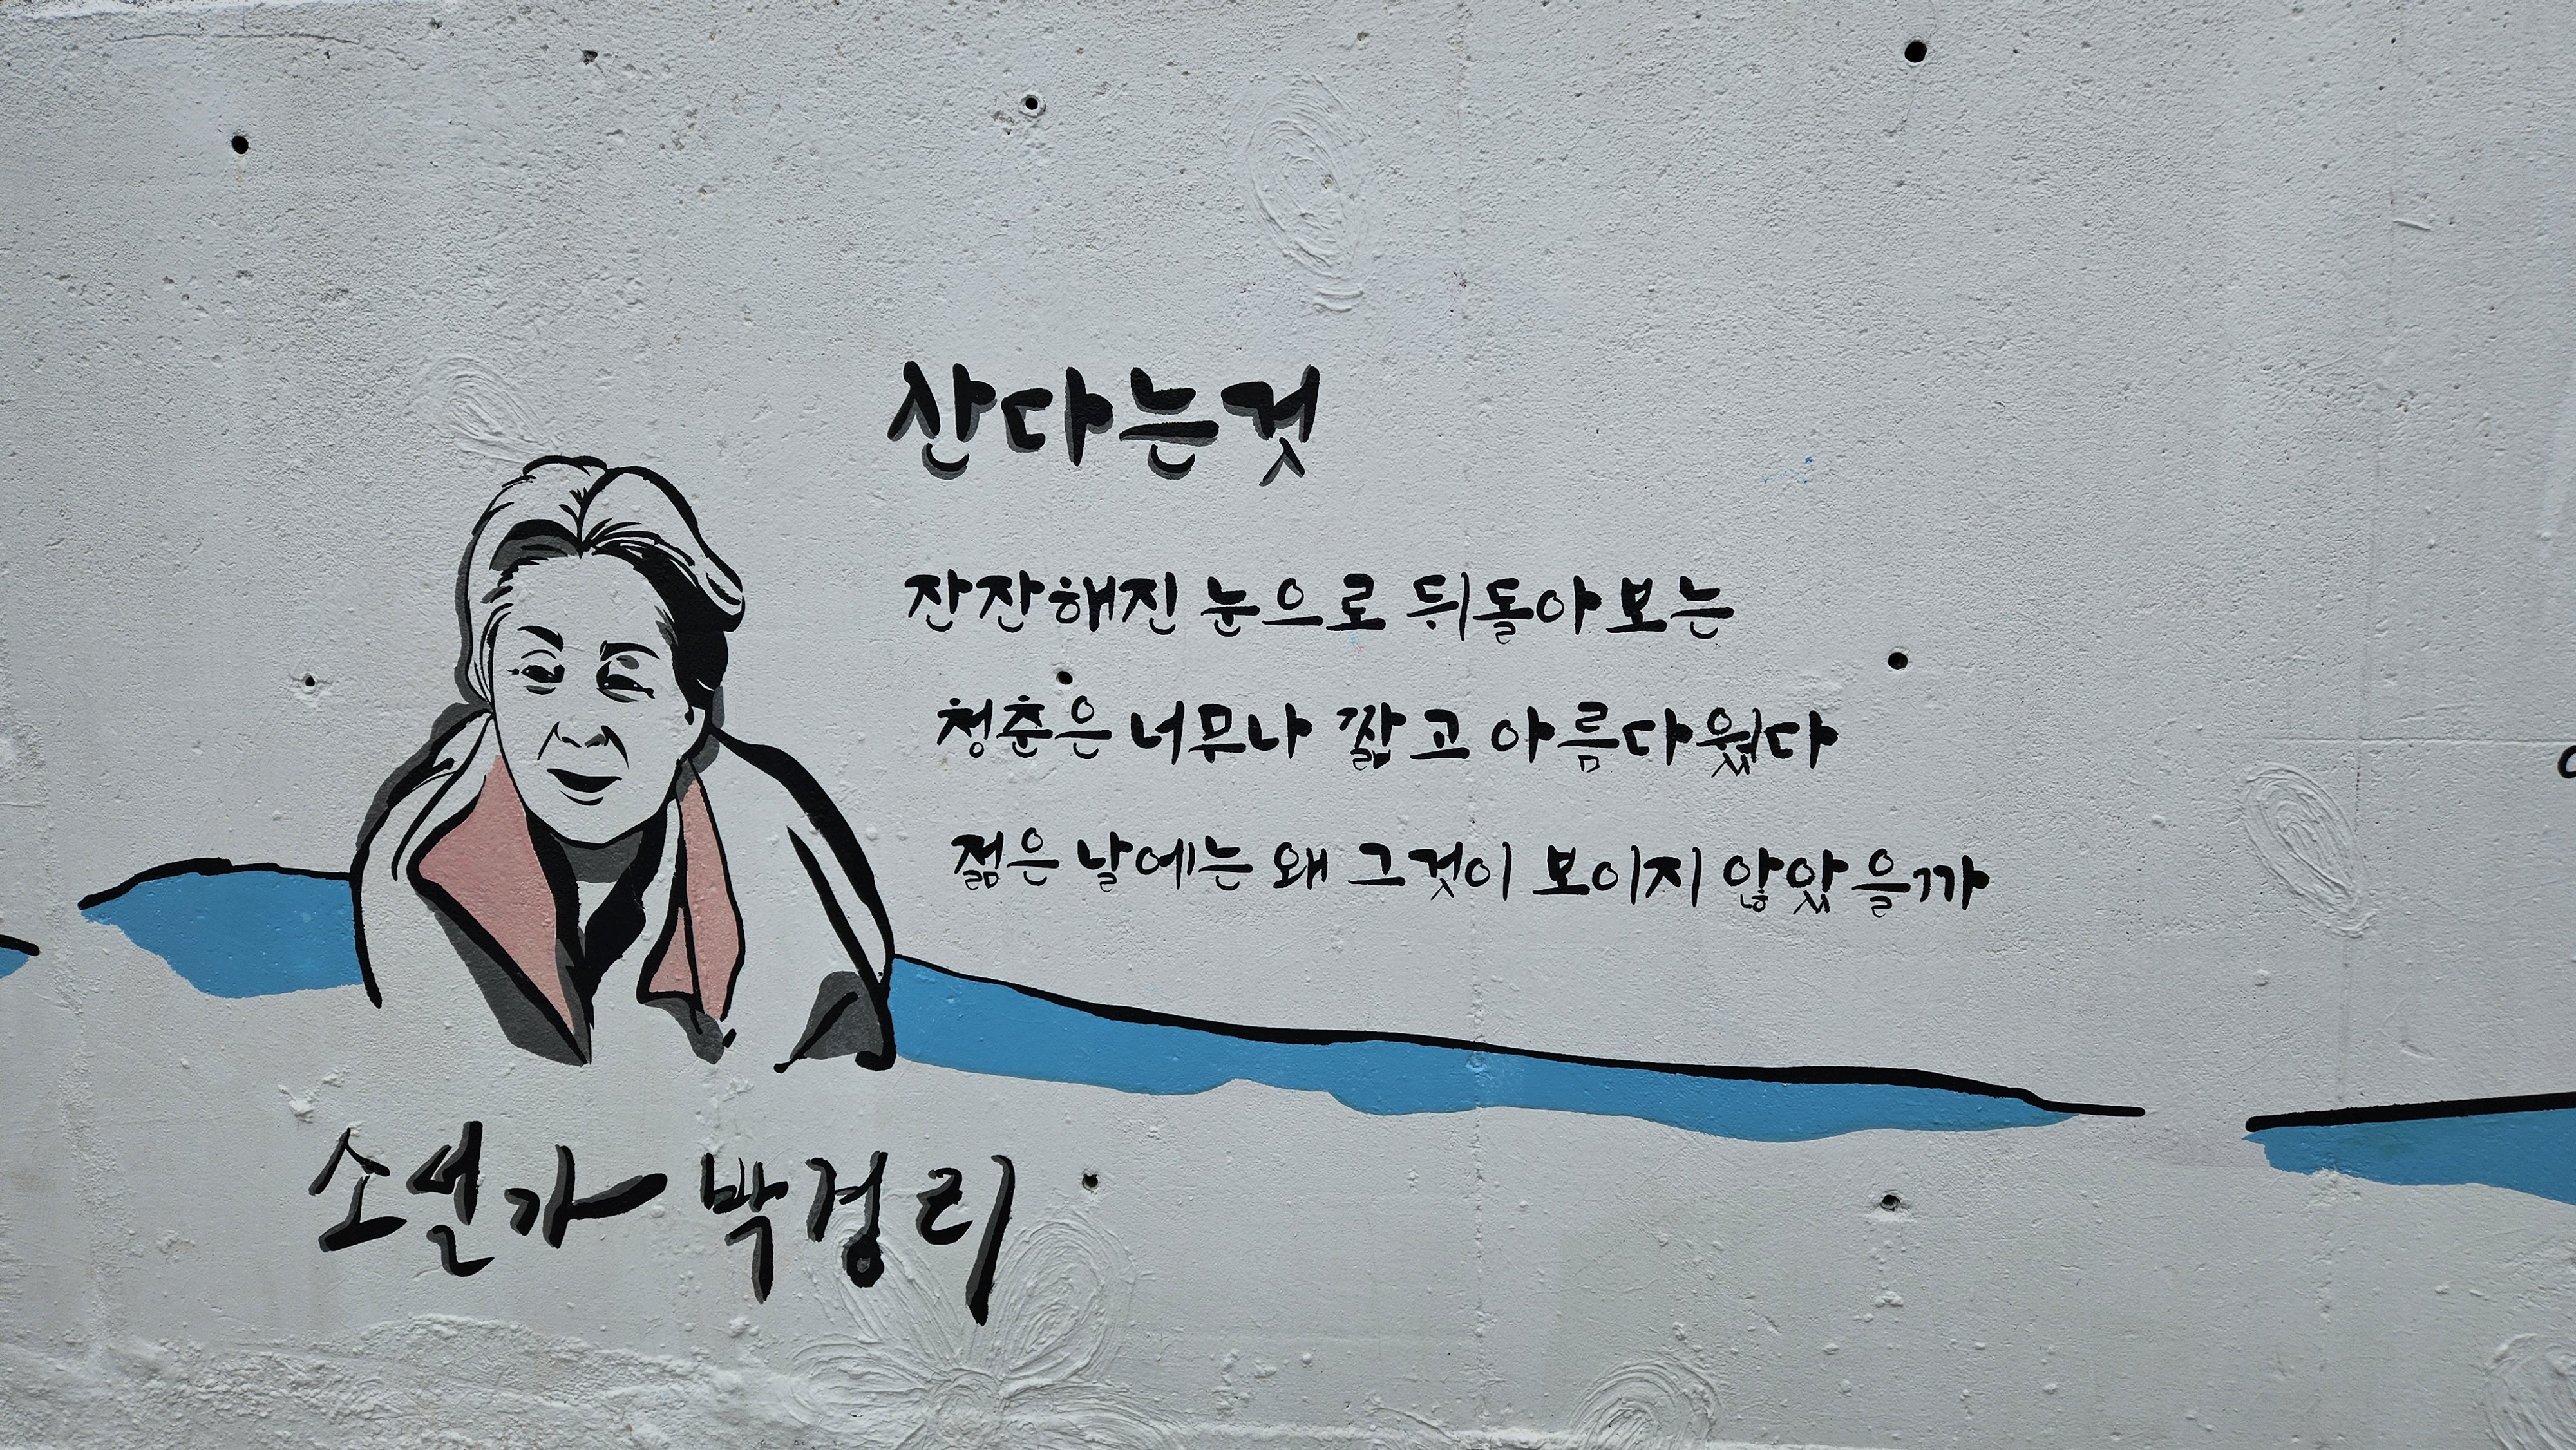 산다는것
잔잔해진 눈으로 뒤돌아 보는
청춘은 너무나 짧고 아름다웠다
젊은 날에는 왜 그것이 보이지 않았을까
소설가 박경리